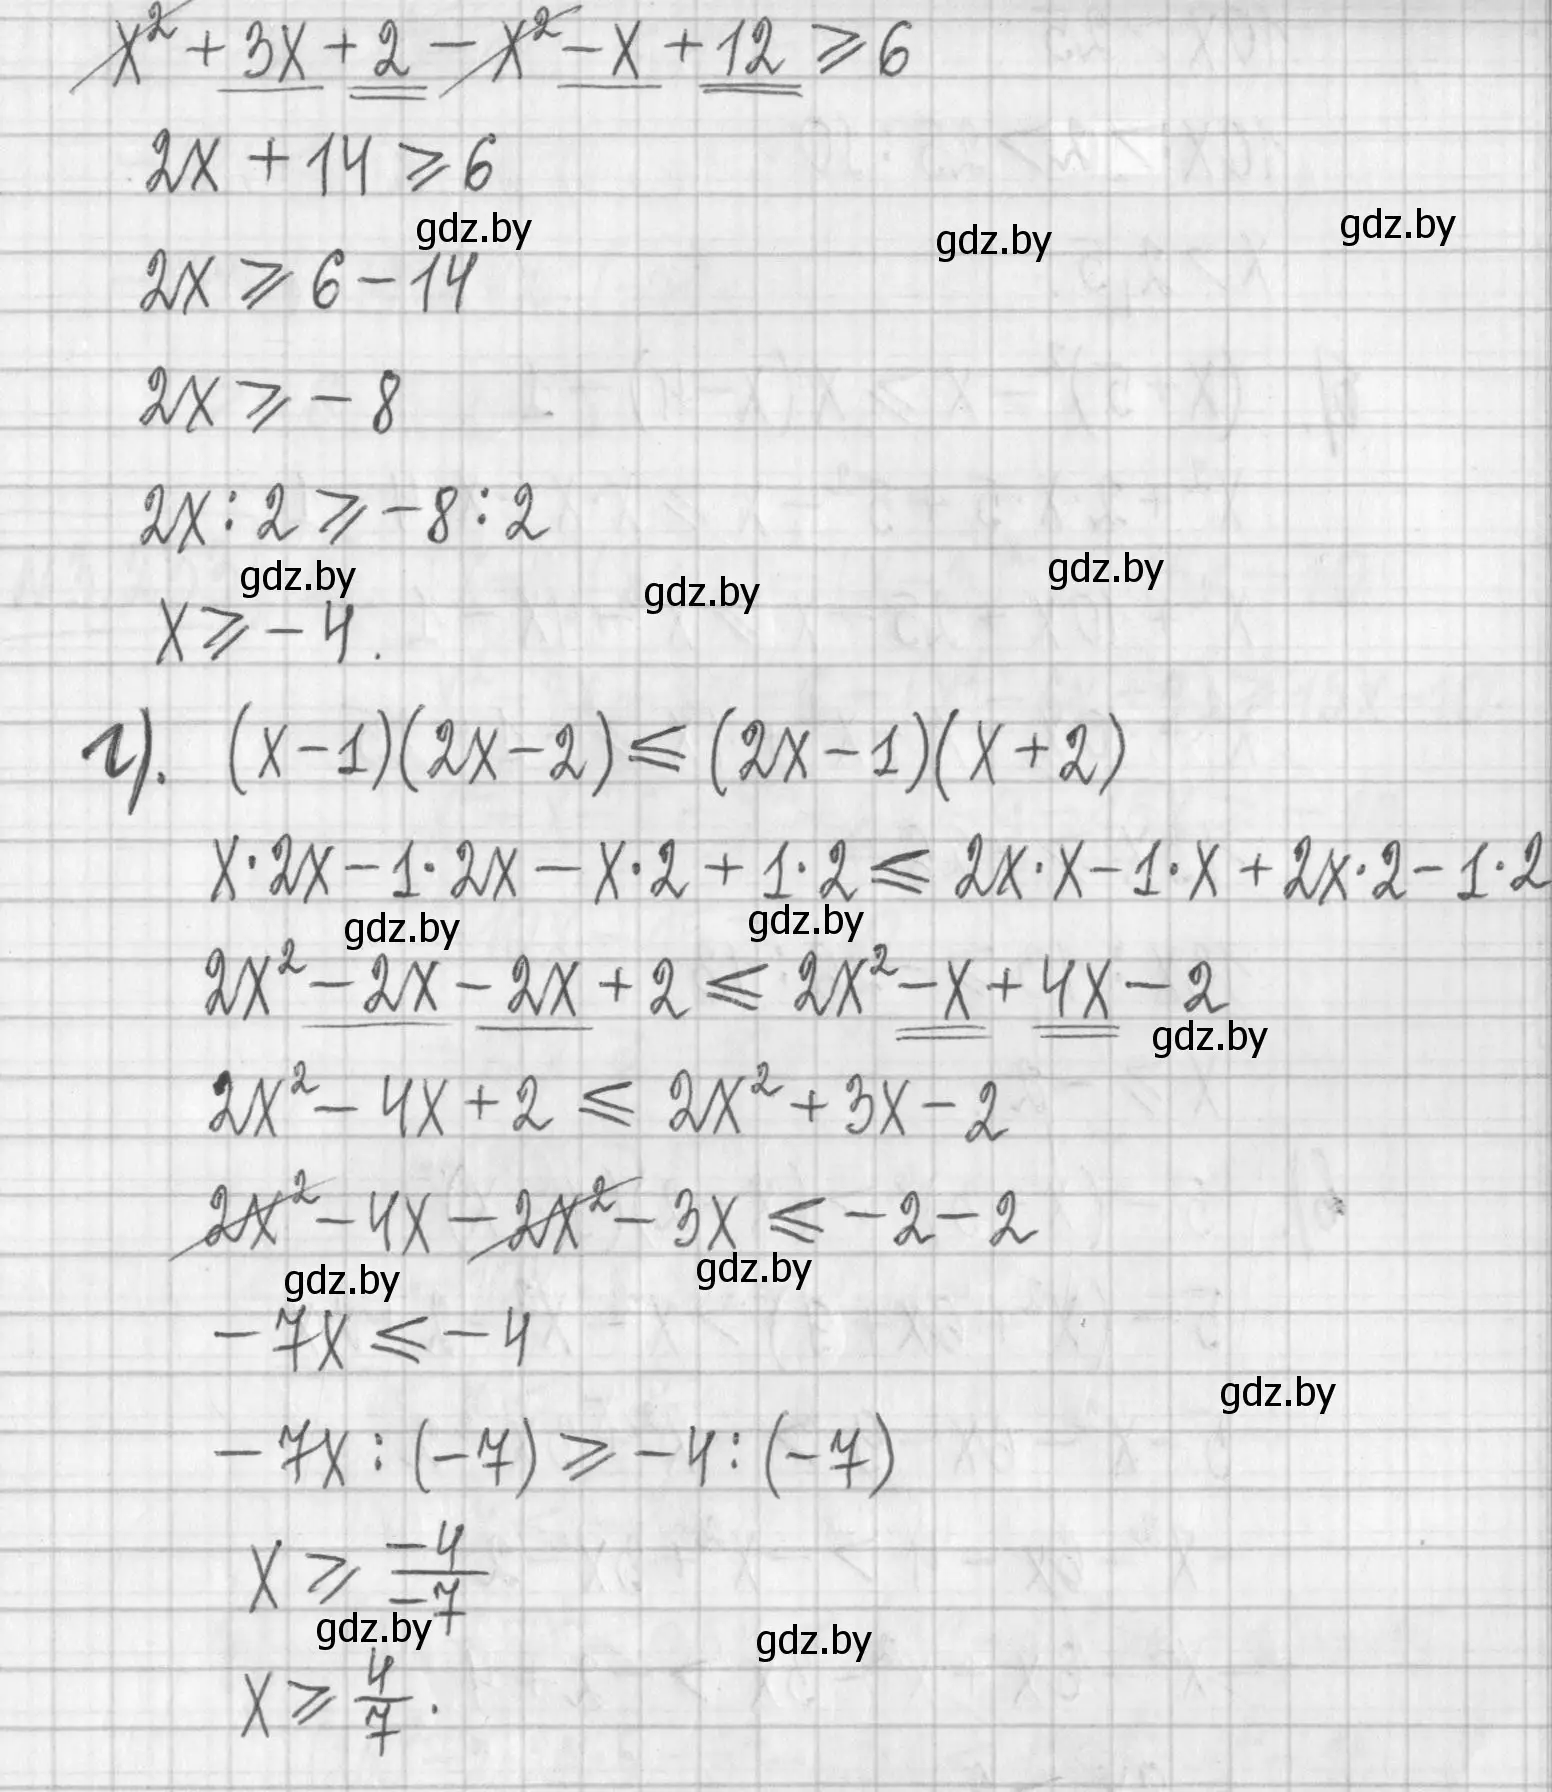 x² + 3x + 2 - x² - x + 12 ⩾ 6
2x + 14 ⩾ 6
gdz.by gdz.by gdz.by
2x ⩾ 6 - 14
2x ⩾ - 8
2x : 2 ⩾ - 8 : 2
gdz.by gdz.by gdz.by
x ⩾ - 4.
г). (x - 1)(2x - 2) ⩽ (2x - 1)(x + 2)
x · 2x - 1 · 2x - x · 2 + 1 · 2 ⩽ 2x · x - 1 · x + 2x · 2 - 1 · 2
gdz.by gdz.by
2x² - 2x - 2x + 2 ⩽ 2x² - x + 4x - 2
gdz.by
2x² - 4x + 2 ⩽ 2x² + 3x - 2
2x² - 4x - 2x² - 3x ⩽ - 2 - 2
gdz.by gdz.by
- 7x ⩽ - 4
gdz.by
- 7x : (- 7) ⩾ - 4 : (- 7)
x ⩾ -4/-7
gdz.by gdz.by
x ⩾ 4/7.